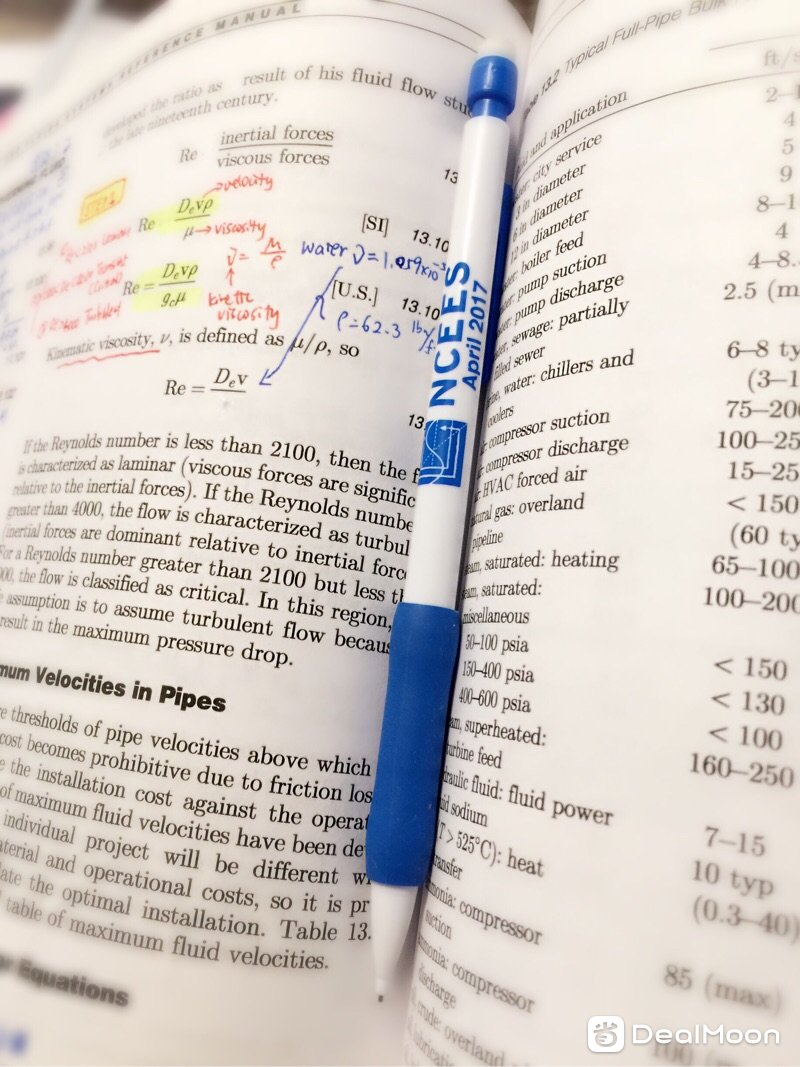 REFERENCE MANUAL
developed the ratio as result of his fluid flow stu
the late nineteenth century.
Re inertial forces
viscous forces
13
velocity
Re = Dₑvρ
μ → viscosity
[SI] 13.10
ν = μ
ρ
water ν = 1.059×10⁻⁵
Re = Dₑvρ
g꜀μ
kinetic
viscosity
[U.S.] 13.10
ρ = 62.3 lb
Kinematic viscosity, ν, is defined as μ/ρ, so
Re = Dₑv
13.
If the Reynolds number is less than 2100, then the f
is characterized as laminar (viscous forces are signific
relative to the inertial forces). If the Reynolds numbe
greater than 4000, the flow is characterized as turbul
(inertial forces are dominant relative to inertial forc
For a Reynolds number greater than 2100 but less th
00, the flow is classified as critical. In this region,
assumption is to assume turbulent flow becaus
result in the maximum pressure drop.
mum Velocities in Pipes
e thresholds of pipe velocities above which
cost becomes prohibitive due to friction los
e the installation cost against the operat
of maximum fluid velocities have been de
individual project will be different wi
aterial and operational costs, so it is pr
late the optimal installation. Table 13.
table of maximum fluid velocities.
Equations
NCEES
April 2017
13.2 Typical Full-Pipe Bulk
ft/s
and application
city service 2–
3 in diameter 4
6 in diameter 5
12 in diameter 9
boiler feed 8–1
pump suction 4
pump discharge 4–8.
sewage: partially 2.5 (m
filled sewer
ine, water: chillers and 6–8 ty
coolers (3–1
compressor suction 75–200
compressor discharge 100–25
HVAC forced air 15–25
natural gas: overland < 150
pipeline (60 ty
eam, saturated: heating 65–100
eam, saturated: 100–200
miscellaneous
50–100 psia < 150
150–400 psia < 130
400–600 psia < 100
am, superheated: 160–250
turbine feed
draulic fluid: fluid power 7–15
id sodium 10 typ
(T > 525°C): heat (0.3–40)
transfer
onia: compressor 85 (max)
suction
onia: compressor 100
discharge
crude: overland
DealMoon